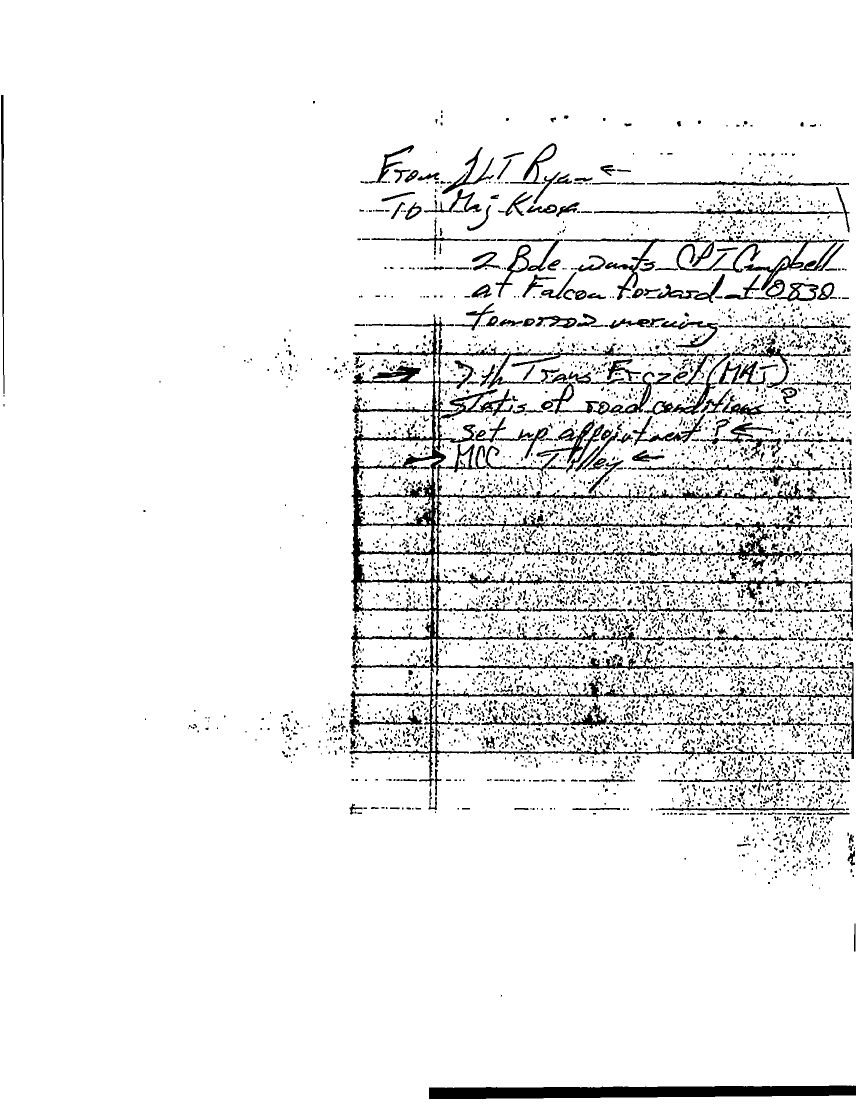 From 1LT Ryan ←
To Maj Knox
2 Bde wants CPT Campbell
at Falcon forward at 0830
tomorrow morning
→ 7th Trans (MAJ)
Status of road conditions ?
set up appointment ? ←
→ MCC Tilley ←